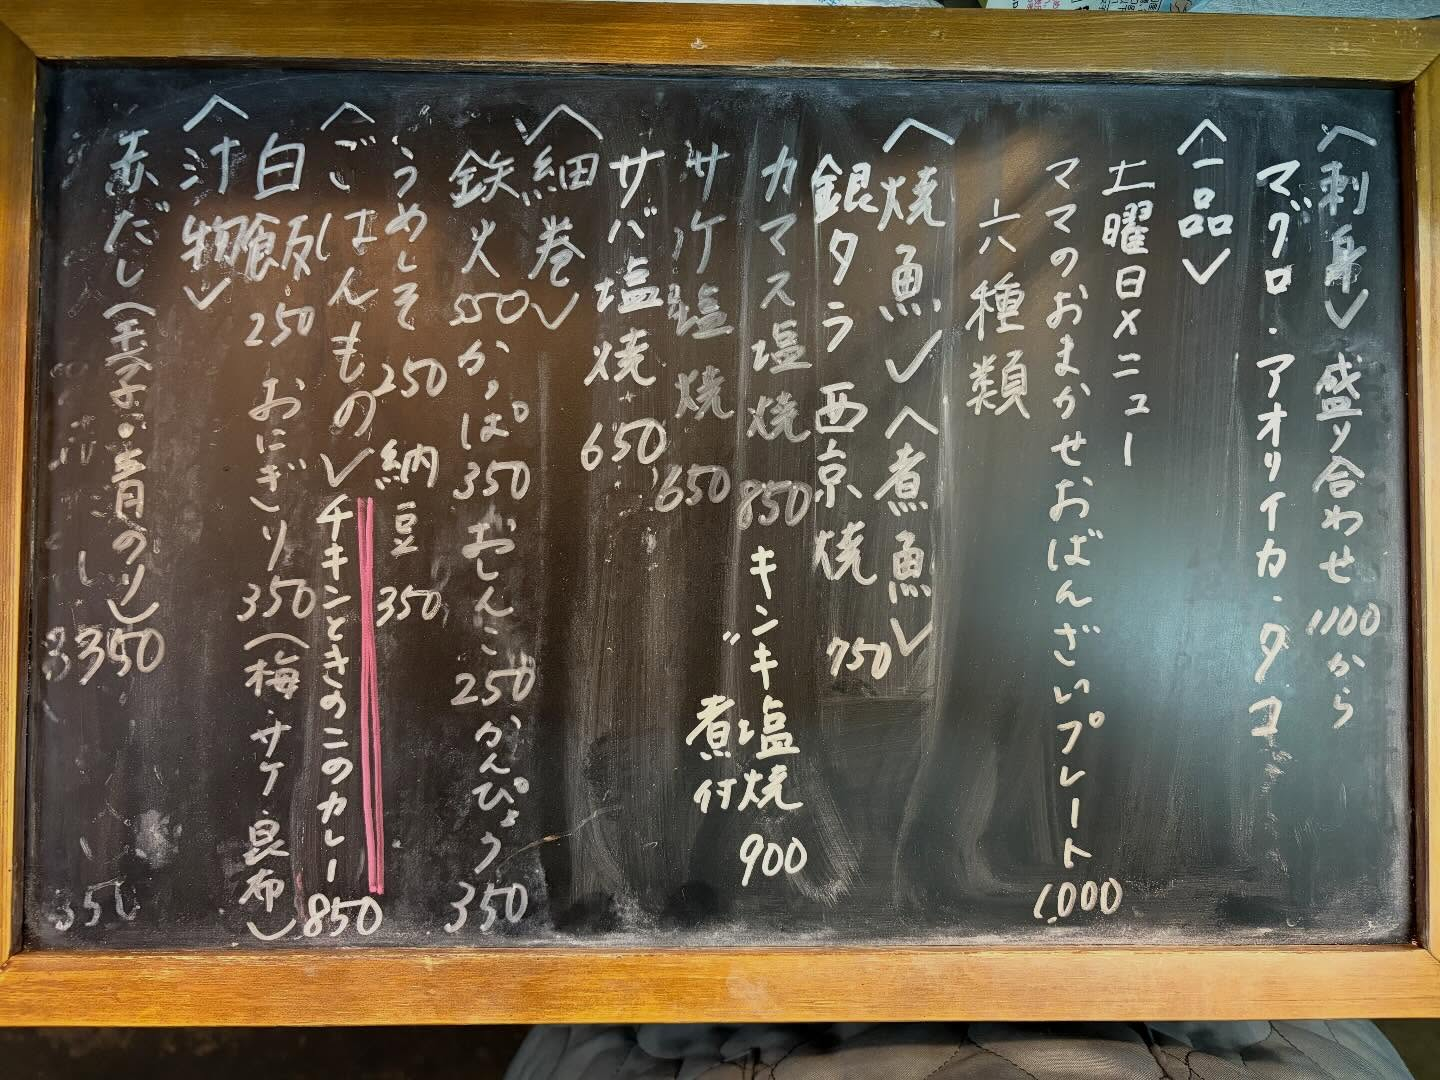 〈刺身〉盛り合わせ 1100から
マグロ・アオリイカ・タコ
〈一品〉
土曜日メニュー
ママのおまかせおばんざいプレート 1,000
六種類
〈焼魚〉〈煮魚〉
銀タラ西京焼 750
カマス塩焼 850 キンキ塩焼 900
煮付
サケ塩焼 650
サバ塩焼 650
〈細巻〉
鉄火 550 かっぱ 350 おしんこ 250 かんぴょう 350
うめしそ 250 納豆 350
〈ごはんもの〉チキンときのこのカレー 850
白飯 250 おにぎり 350(梅・サケ・昆布)
〈汁物〉
赤だし(玉子・青のり) 350